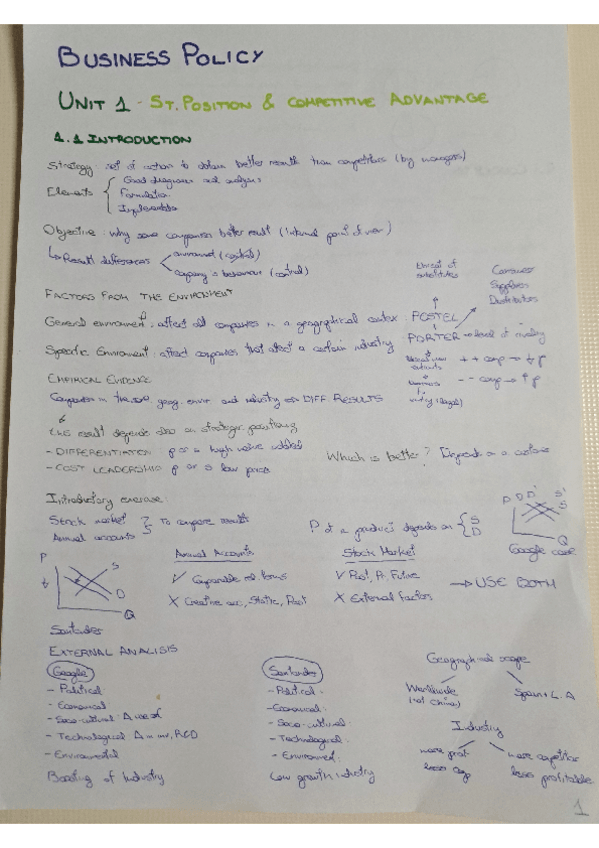 BUSINESS POLICY
UNIT 1 - ST. POSITION & COMPETITIVE ADVANTAGE
1.1 INTRODUCTION
Strategy: set of action to obtain better results than competitors (by managers)
Elements
Good diagnoses and analysis
Formulation
Implementation
Objective: why some companies better result (internal point of view)
Result differences
environment (control)
company's behaviour (control)
FACTORS FROM THE ENVIRONMENT
General environment: affect all companies in a geographical context
PESTEL
Specific Environment: affect companies that affect a certain industry
PORTER
level of rivalry
Threat of substitutes
Consumer
Suppliers
Distributors
++ comp → ↓ p
-- comp → ↑ p
EMPIRICAL EVIDENCE
Companies in the same geog. envir. and industry DIFF RESULTS
this result depends also on strategic positioning
- DIFFERENTIATION p a high value added
- COST LEADERSHIP p a low price
Which is better? Depends on a
Introductory exercise
Stock market
Annual accounts
To compare results
P of a product depends on
S
D
P D D' S' S
Q
Google case
P
S
D
Q
Santander
Annual Accounts
✓ Comparable
X Creative acc, Static, Past
Stock Market
✓ Past, Pr, Future
X External factors
→ USE BOTH
EXTERNAL ANALISIS
Google
- Political
- Economical
- Socio-cultural Δ use of
- Technological Δ in inv, R&D
- Environmental
Boosting of Industry
Santander
- Political
- Economical
- Socio-cultural
- Technological
- Environment
Low growth industry
Geographical scope
Worldwide (not China)
Spain + L.A
Industry
more prof
less comp
more competitive
less profitable
1